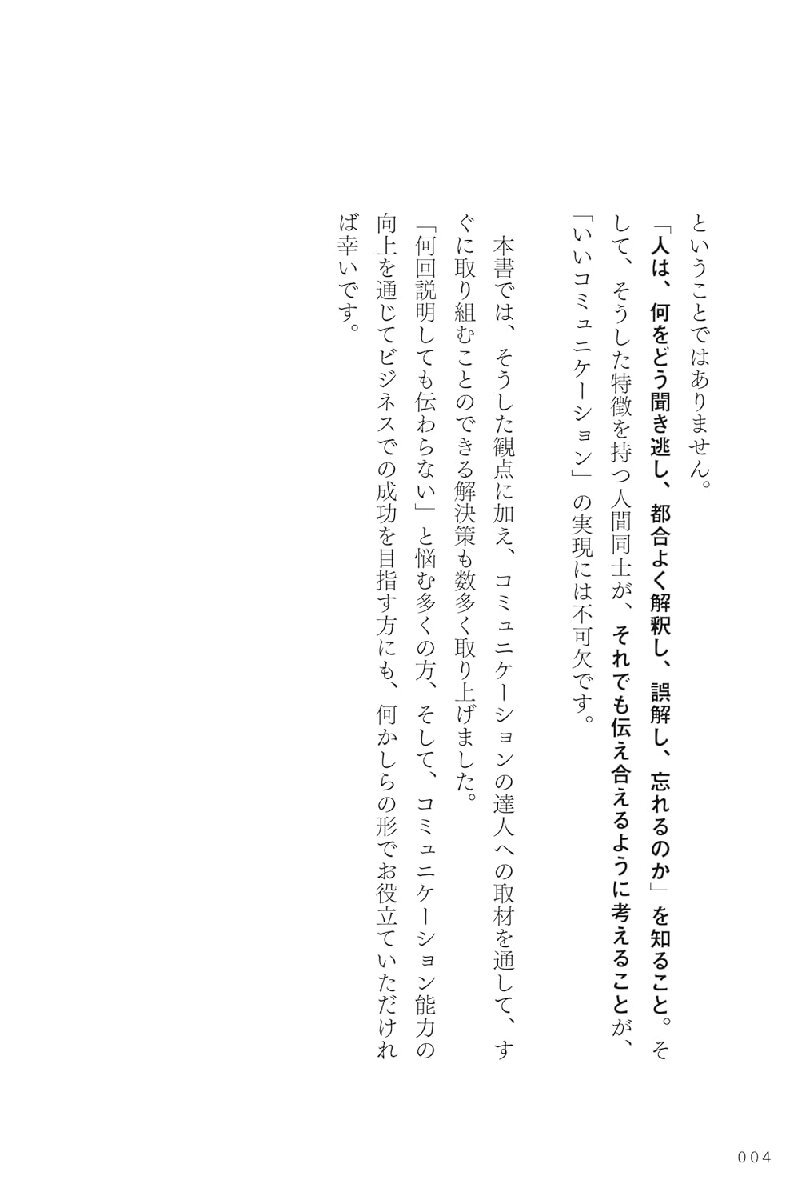 ということではありません。
「人は、何をどう聞き逃し、都合よく解釈し、誤解し、忘れるのか」を知ること。そ
して、そうした特徴を持つ人間同士が、それでも伝え合えるように考えることが、
「いいコミュニケーション」の実現には不可欠です。
本書では、そうした観点に加え、コミュニケーションの達人への取材を通して、す
ぐに取り組むことのできる解決策も数多く取り上げました。
「何回説明しても伝わらない」と悩む多くの方、そして、コミュニケーション能力の
向上を通じてビジネスでの成功を目指す方にも、何かしらの形でお役立ていただけれ
ば幸いです。
004